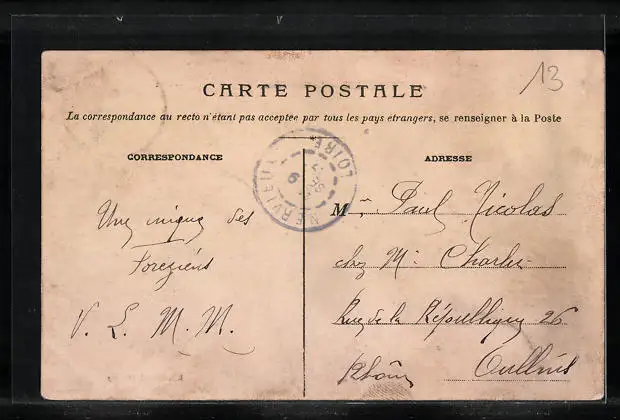 13
CARTE POSTALE
La correspondance au recto n'étant pas acceptée par tous les pays étrangers, se renseigner à la Poste
CORRESPONDANCE
ADRESSE
LOIRE
M Paul Nicolas
Une des
chez M. Charlin
Foreziens
Rue de la République 26
V. L. M. M.
Oullins
Rhône